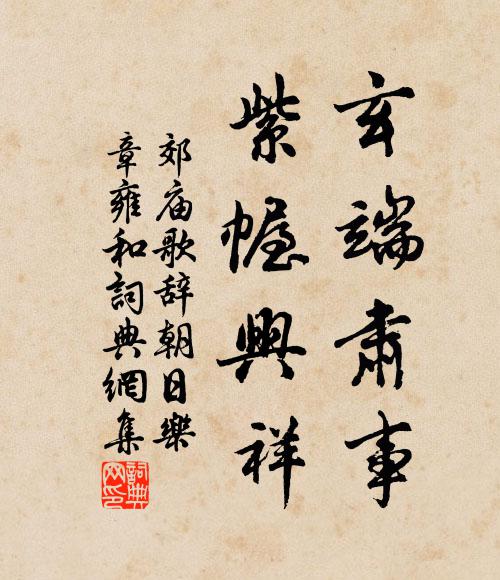 玄端肅事
紫幄興祥
郊庙歌辞朝日樂
章雍和詞典網集
詞典网印